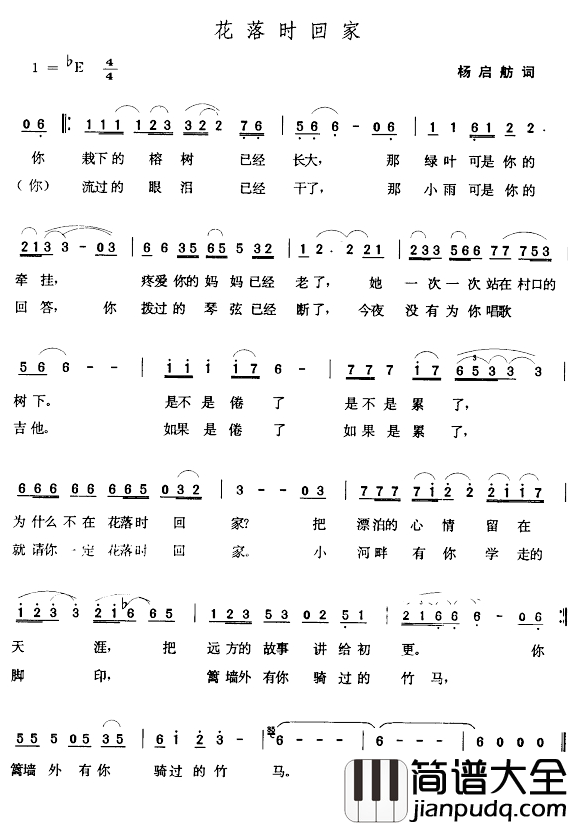 花落时回家
1 = ♭E 4/4 杨启舫词
0 6 ‖: 1 1 1 1 2 3 3 2 2 7 6 | 5 6 6 - 0 6 | 1 1 6 1 2 2 .
你 栽下的 榕 树 已经 长大， 那 绿叶 可是 你的
（你） 流过的 眼 泪 已经 干了， 那 小雨 可是 你的
2 1 3 3 - 0 3 | 6 6 3 5 6 5 3 2 | 1 2 . 2 2 1 | 2 3 3 5 6 6 7 7 7 5 3
牵挂， 疼爱 你的 妈妈 已经 老了， 她 一次 一次 站在 村口的
回答， 你 拨过的 琴弦 已经 断了， 今夜 没有 为你 唱歌
5 6 6 - - | i i i i 7 6 - | 7 7 7 i 7 6 5 3 3 3
树下。 是不 是 倦 了 是不 是 累 了，
吉他。 如果 是 倦 了 如果 是 累 了，
6 6 6 6 6 6 6 6 5 0 3 2 | 3 - - 0 3 | 7 7 7 7 i 2 2 i 7 5
为什么不在 花落时 回 家？ 把 漂泊的 心 情 留 在
就请你一定 花落时 回 家。 小 河畔 有 你 学 走的
i 2 3 3 2 i ♭6 6 6 5 | 1 2 3 5 3 0 2 5 1 | 2 1 6 6 6 - 0 6 :‖
天 涯， 把 远方的 故事 讲给 初 更。 你
脚 印， 篱墙外 有你 骑过 的 竹 马，
5 5 5 5 0 5 3 5 | 6 i 2 3 - | 6 - - - | 6 - - - | 6 0 0 0 ‖
篱墙 外 有 你 骑过 的 竹 马。
简谱大全
jianpudq.com